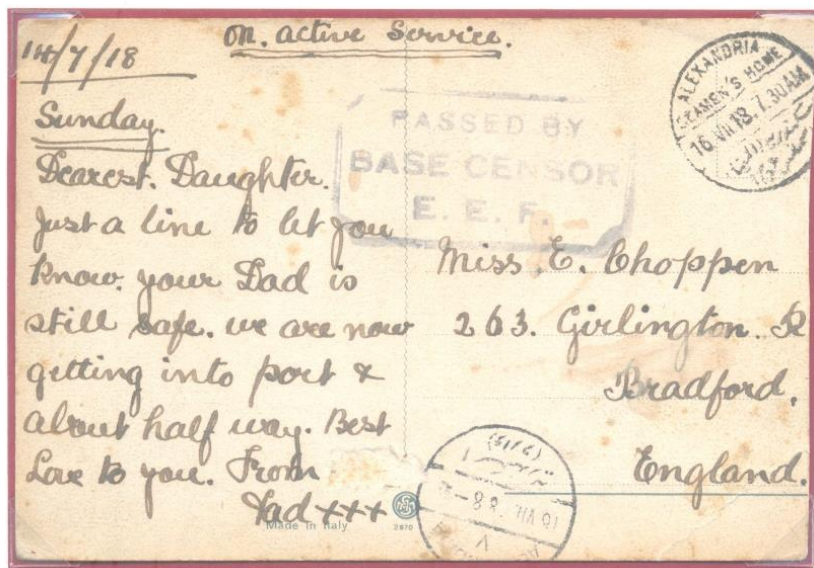 14/7/18
On. active Service.
Sunday.
Dearest. Daughter.
Just a line to let you
know. your Dad is
still safe. we are now
getting into port &
about half way. Best
Love to you. From
Dad +++
PASSED BY
BASE CENSOR
E. E. F.
ALEXANDRIA
SEAMEN'S HOME
16.VII.18.7.30AM
Miss. E. Choppen
263. Girlington. R
Bradford.
England.
Made in Italy
2870